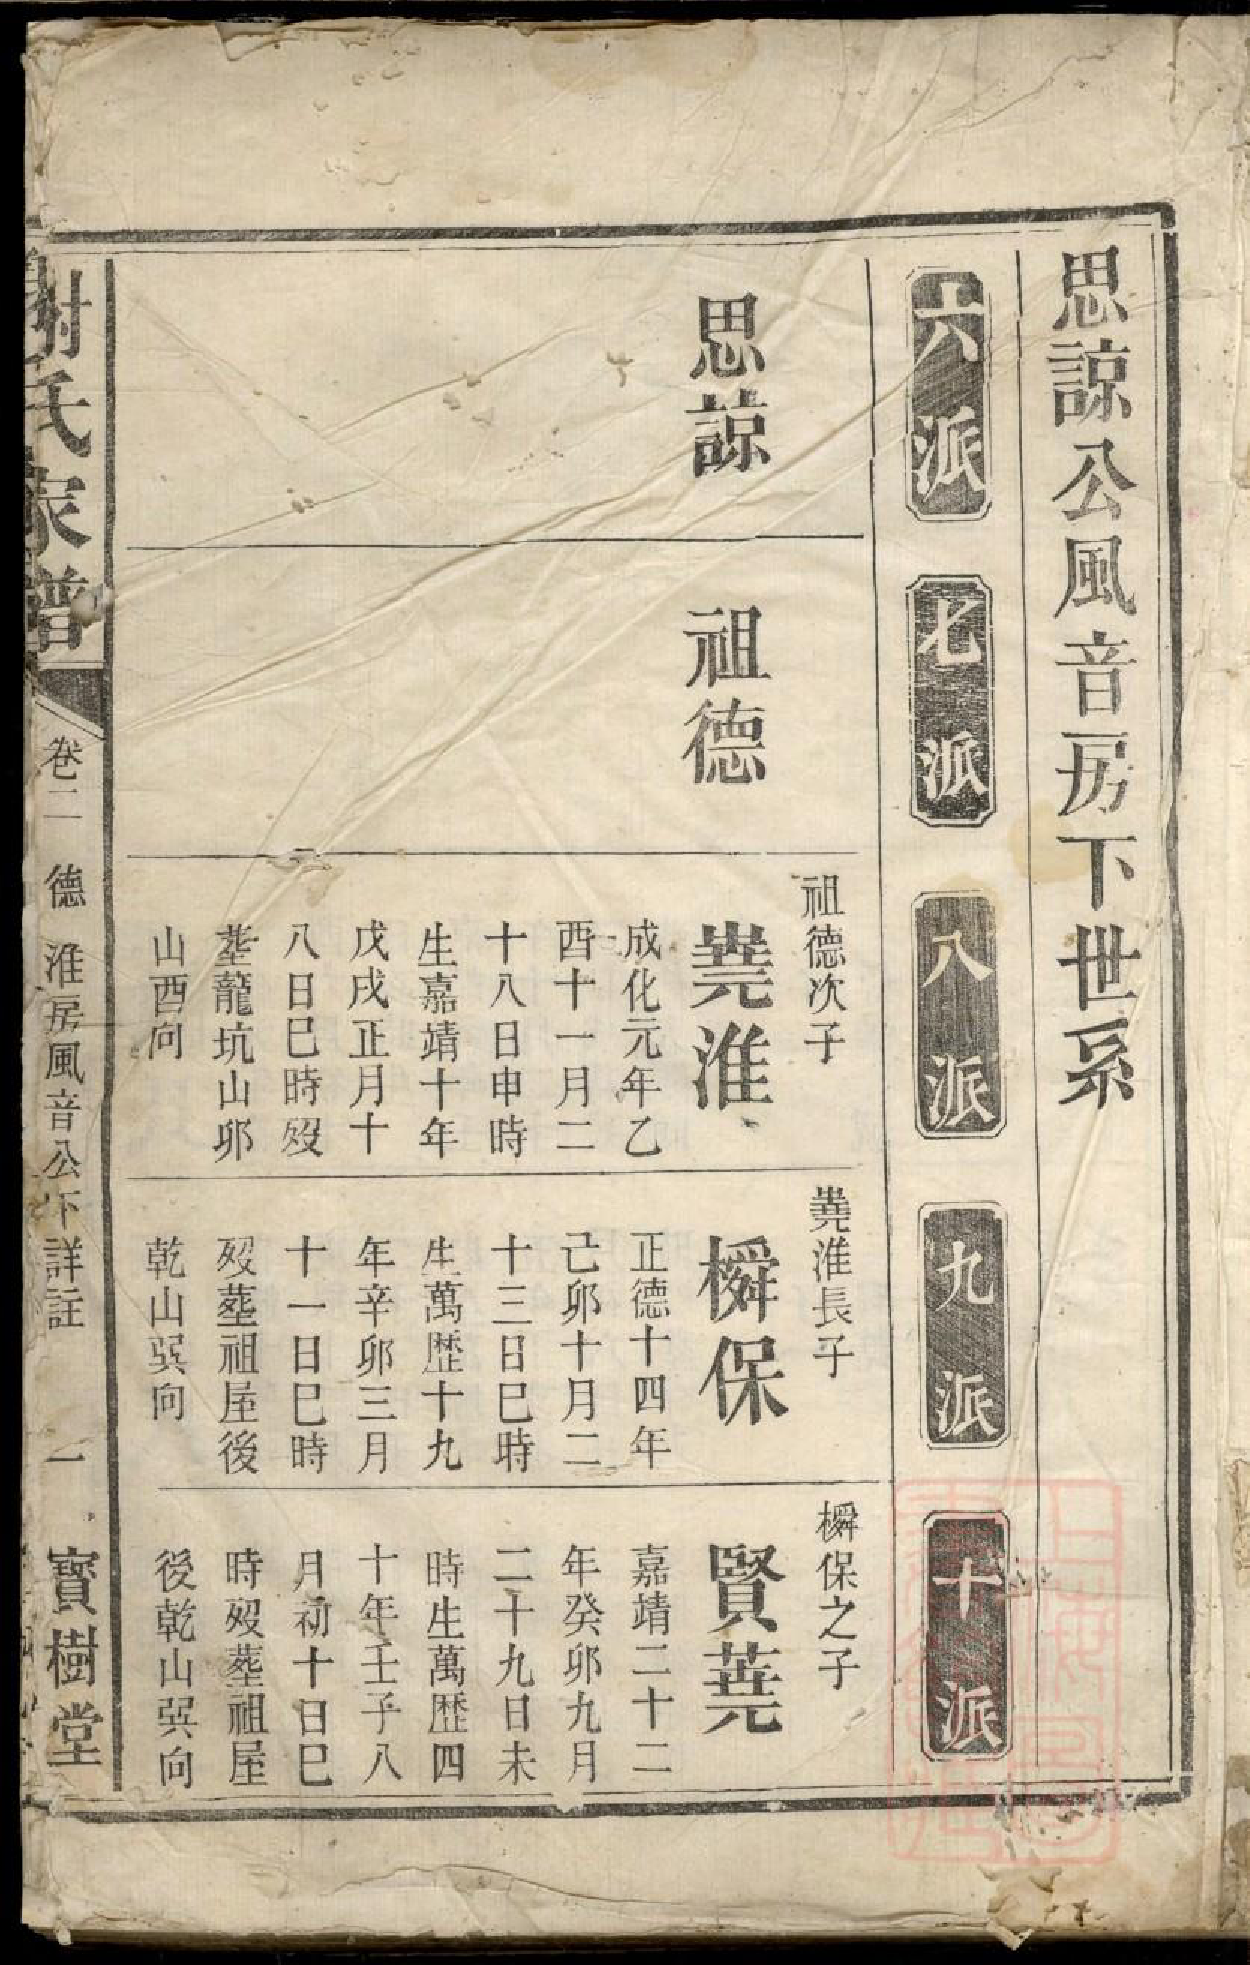 思諒公風音房下世系
六派
七派
八派
九派
十派
思諒
祖德
祖德次子
蕘淮
成化元年乙
酉十一月二
十八日申時
生嘉靖十年
戊戌正月十
八日巳時殁
塟龍坑山卯
山酉向
蕘淮長子
橓保
正德十四年
己卯十月二
十三日巳時
生萬歷十九
年辛卯三月
十一日巳時
殁塟祖屋後
乾山巽向
橓保之子
賢蕘
嘉靖二十二
年癸卯九月
二十九日未
時生萬歷四
十年壬子八
月初十日巳
時殁塟祖屋
後乾山巽向
謝氏家譜
卷二 德 淮房風音公下詳註 一 寳樹堂